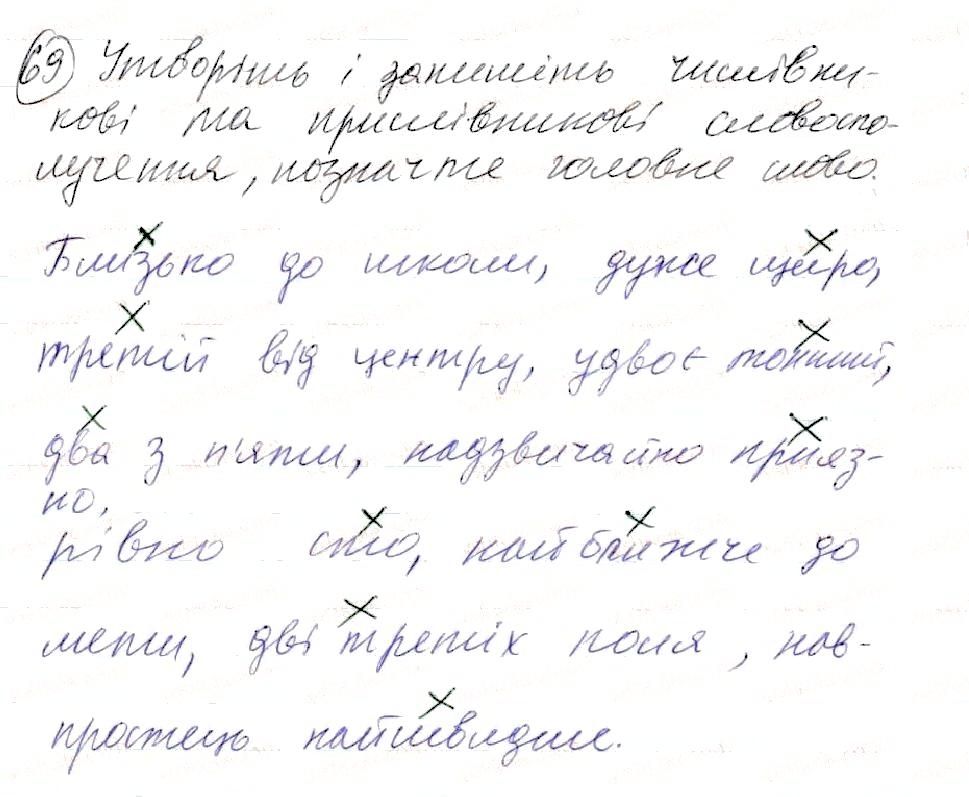 69 Утворіть і запишіть числівни-
кові та прислівникові словоспо-
лучення, позначте головне слово.
Близько до школи, дуже щиро,
третій від центру, удвоє тонший,
два з п'яти, надзвичайно прияз-
но,
рівно сто, найближче до
мети, дві третіх поля, нав-
простець найшвидше.